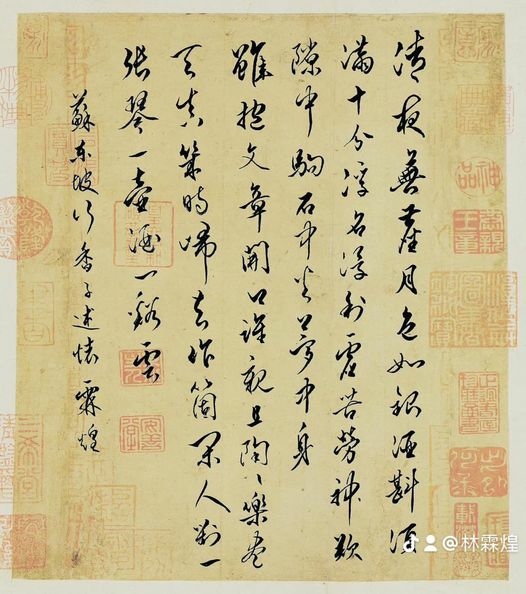 清夜無塵月色如銀酒斟須
滿十分浮名浮利虛苦勞神歎
隙中駒石中火夢中身
雖抱文章開口誰親且陶〻樂盡
天真幾時歸去作箇閒人對一
張琴一壺酒一谿雲
蘇東坡行香子述懷霖煌
神品
@林霖煌